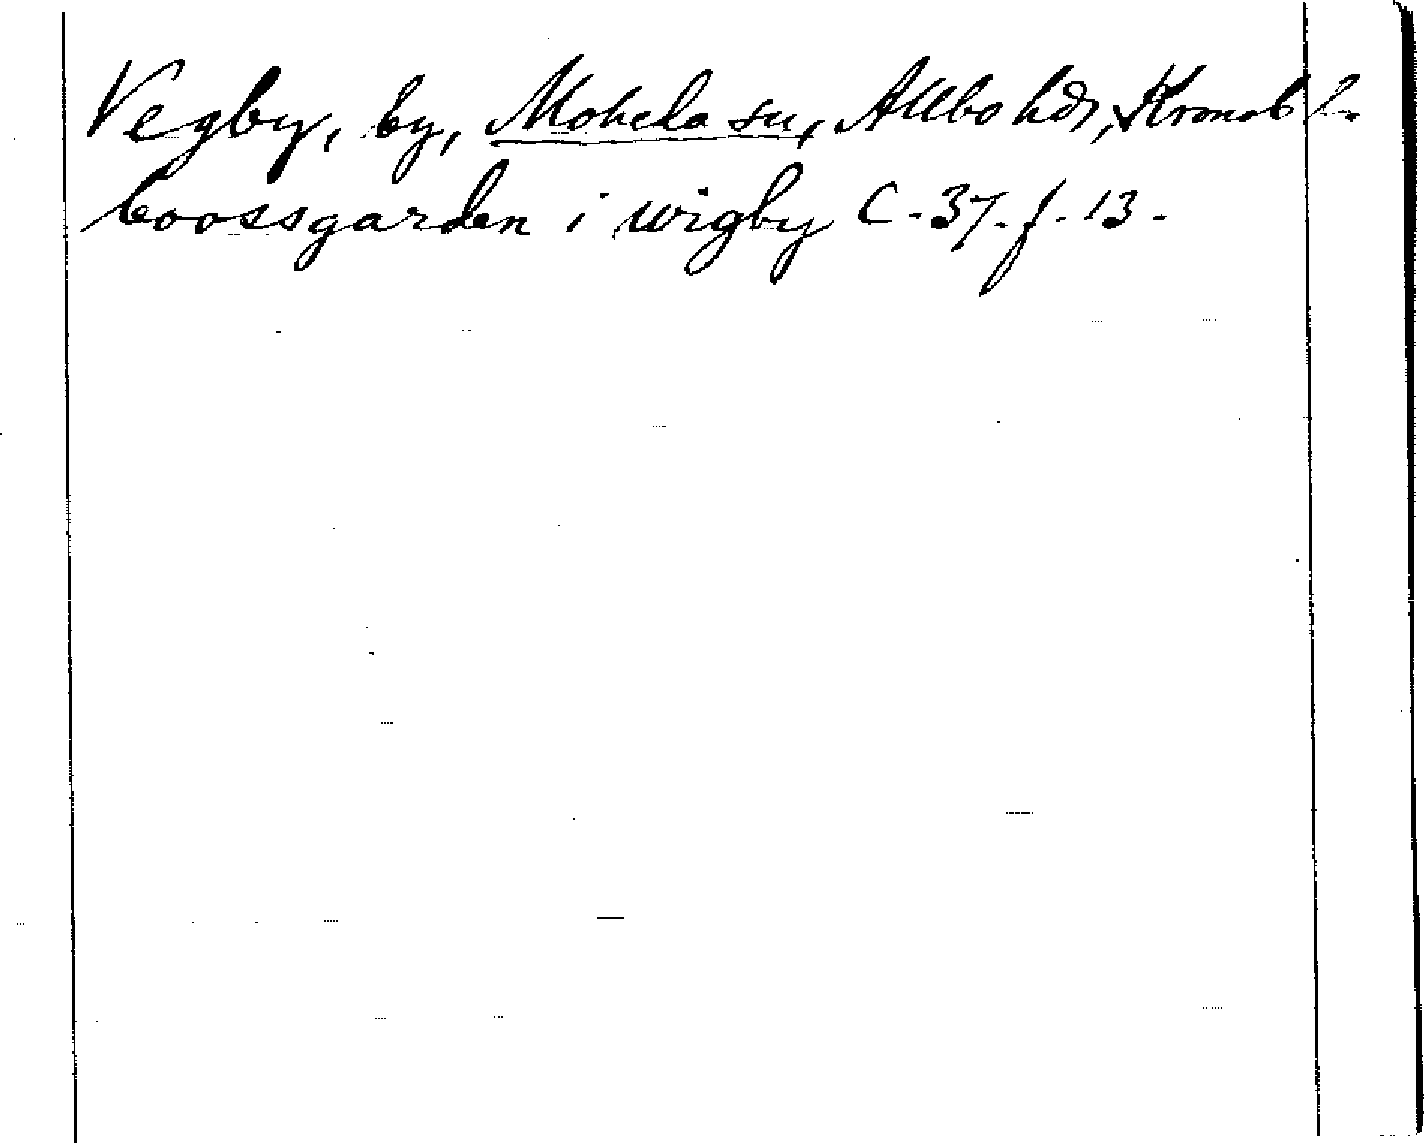 Vegby, by, Moheda sn, Allbo hdr, Kronob l.
boossgarden i wigby C. 37. f. 13.